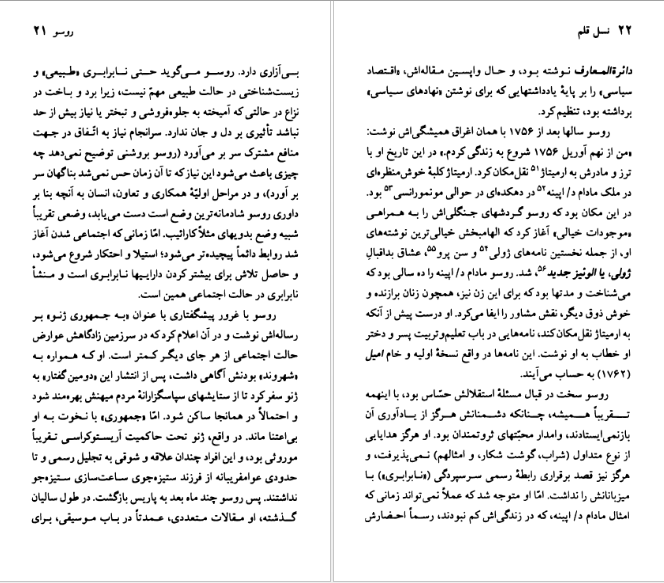 روسو ۲۱
بی‌آزاری دارد. روسو می‌گوید حتی نابرابری «طبیعی» و
زیست‌شناختی در حالت طبیعی مهمّ نیست، زیرا برد و باخت در
نزاع در حالتی که آمیخته به جلوه‌فروشی و تبختر یا نیاز بیش از حد
نباشد تأثیری بر دل و جان ندارد. سرانجام نیاز به اتّفاق در جهت
منافع مشترک سر بر می‌آورد (روسو بروشنی توضیح نمی‌دهد چه
چیزی باعث می‌شود این نیاز که تا آن زمان حس نمی‌شد بناگهان سر
بر آورد)، و در مراحل اولیّهٔ همکاری و تعاون، انسان به آنچه بنا بر
داوری روسو شادمانه‌ترین وضع است دست می‌یابد، وضعی تقریباً
شبیه وضع بدویهای مثلاً کارائیب. امّا زمانی که اجتماعی شدن آغاز
شد روابط دائماً پیچیده‌تر می‌شود؛ استیلا و احتکار شروع می‌شود،
و حاصل تلاش برای بیشتر کردن داراییها نابرابری است و منشأ
نابرابری در حالت اجتماعی همین است.
روسو با غرور پیشگفتاری با عنوان «به جمهوری ژنو» بر
رساله‌اش نوشت و در آن اعلام کرد که در سرزمین زادگاهش عوارض
حالت اجتماعی از هر جای دیگر کمتر است. او که همواره به
«شهروند» بودنش آگاهی داشت، پس از انتشار این «دومین گفتار» به
ژنو سفر کرد تا از ستایشهای سپاسگزارانهٔ مردم میهنش بهره‌مند شود
و احتمالاً در همانجا ساکن شود. امّا «جمهوری» با نخوت به او
بی‌اعتنا ماند. در واقع، ژنو تحت حاکمیت آریستوکراسی تقریباً
موروثی بود، و این افراد چندان علاقه و شوقی به تجلیل رسمی و تا
حدودی عوامفریبانه از فرزند ستیزه‌جوی ساعت‌سازی ستیزه‌جو
نداشتند. پس روسو چند ماه بعد به پاریس بازگشت. در طول سالیان
گذشته، او مقالات متعددی، عمدتاً در باب موسیقی، برای
۲۲ نسل قلم
دائرةالمعارف نوشته بود، و حال واپسین مقاله‌اش، «اقتصاد
سیاسی» را بر پایهٔ یادداشتهایی که برای نوشتن «نهادهای سیاسی»
برداشته بود، تنظیم کرد.
روسو سالها بعد از ۱۷۵۶ با همان اغراق همیشگی‌اش نوشت:
«من از نهم آوریل ۱۷۵۶ شروع به زندگی کردم.» در این تاریخ او با
ترز و مادرش به ارمیتاژ۵۱ نقل‌مکان کرد. ارمیتاژ کلبهٔ خوش‌منظره‌ای
در ملک مادام د/ اپینه۵۲ در دهکده‌ای در حوالی مونمورانسی۵۳ بود.
در این مکان بود که روسو گردشهای جنگلی‌اش را به همراهی
«موجودات خیالی» آغاز کرد که الهامبخش خیالی‌ترین نوشته‌های
او، از جمله نخستین نامه‌های ژولی۵۴ و سن پرو۵۵، عشاق بداقبالِ
ژولی، یا الوئیز جدید۵۶، شد. روسو مادام د/ اپینه را ده سالی بود که
می‌شناخت و مدتها بود که برای این زن نیز، همچون زنان برازنده و
خوش ذوق دیگر، نقش مشاور را ایفا می‌کرد. او درست پیش از آنکه
به ارمیتاژ نقل‌مکان کند، نامه‌هایی در باب تعلیم‌وتربیت پسر و دختر
او خطاب به او نوشت. این نامه‌ها در واقع نسخهٔ اولیه و خام امیل
(۱۷۶۲) به حساب می‌آیند.
روسو سخت در قبال مسئلهٔ استقلالش حسّاس بود، با اینهمه
تقریباً همیشه، چنانکه دشمنانش هرگز از یادآوری آن
بازنمی‌ایستادند، وامدار محبّتهای ثروتمندان بود. او هرگز هدایایی
از نوع متداول (شراب، گوشت شکار، و امثالهم) نمی‌پذیرفت، و
هرگز نیز قصد برقراری رابطهٔ رسمی سرسپردگی («نابرابری») با
میزبانانش را نداشت. امّا او متوجه شد که عملاً نمی‌تواند زمانی که
امثال مادام د/ اپینه، که در زندگی‌اش کم نبودند، رسماً احضارش